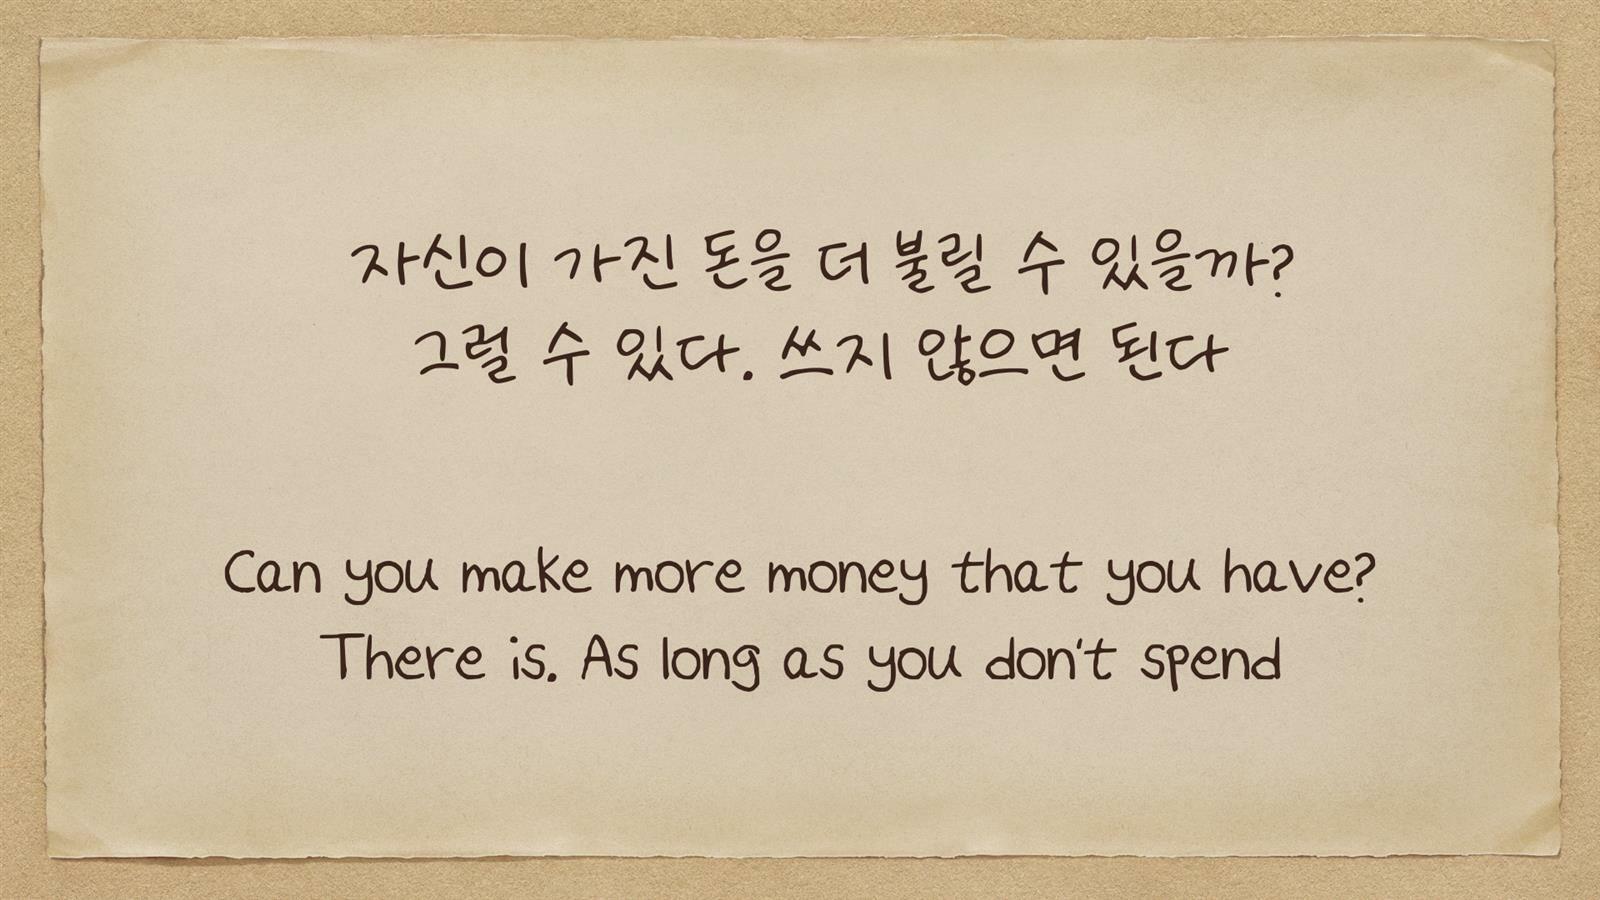 자신이 가진 돈을 더 불릴 수 있을까?
그럴 수 있다. 쓰지 않으면 된다
Can you make more money that you have?
There is. As long as you don't spend